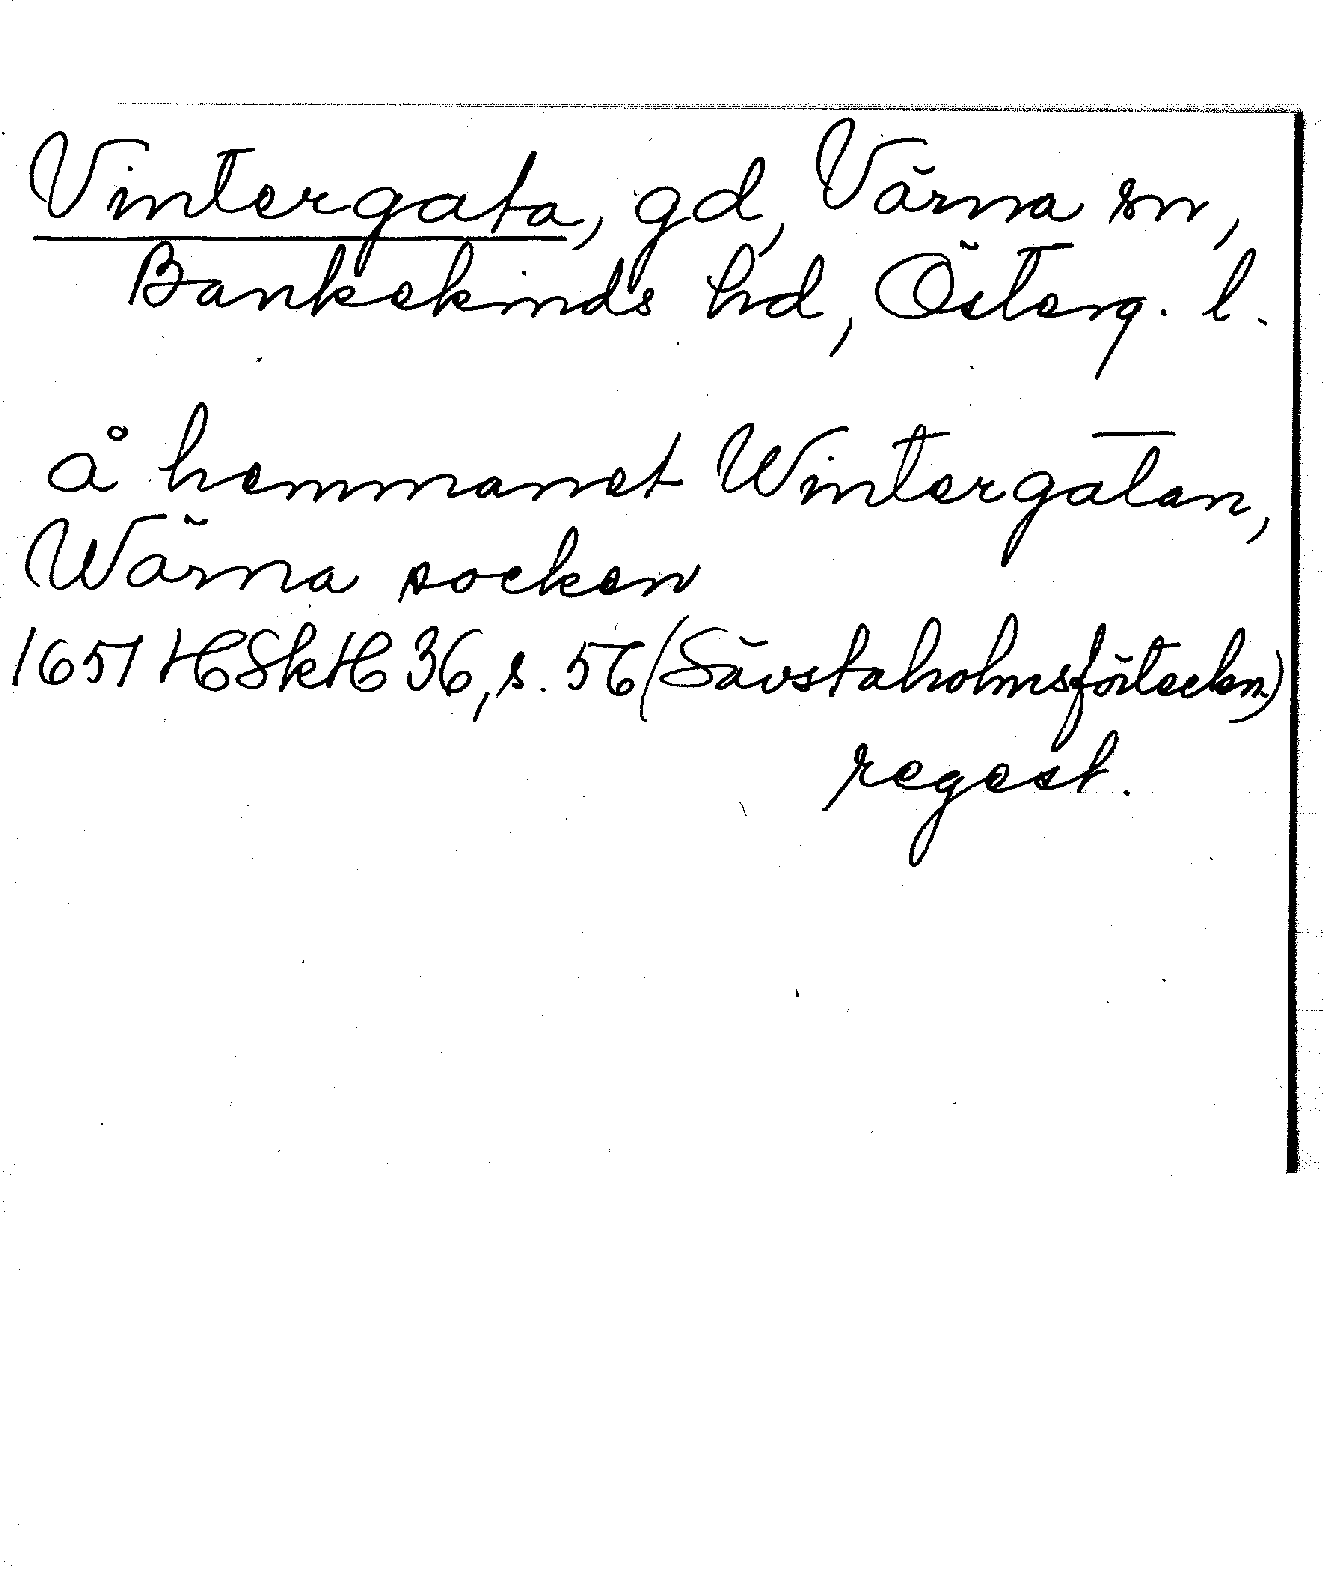 Vintergata, gd, Värna sn,
Bankekinds hd, Österg. l.
å hemmanet Wintergatan,
Wärna socken
1651 HSkH 36, s. 56 (Sävstaholmsförteckn.)
regest.